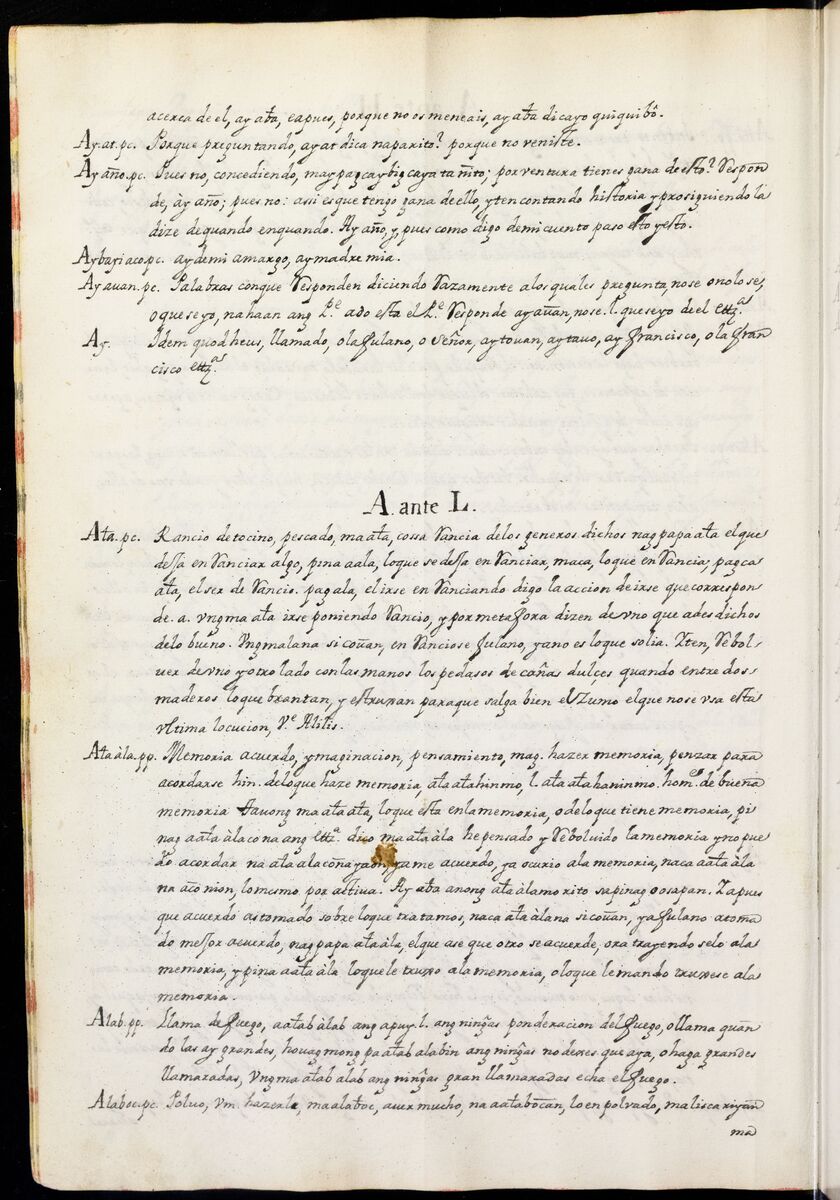 acerca de el, ay ata, ea pues, porque no os meneais, ay ata dicayo quiquibô.
Ay. at. pc. Porque preguntando, ay at dica naparito? porque no veniste.
Ay año. pc. Pues no, concediendo, may pag cay big caya ta ñito; por ventura tienes gana de esto? Respon
de, ày año; pues no: assi es que tengo gana de ello, y ten contando historia y prosiguiendo la
dize de quando en quando. Ay año, y, pues como digo de mi cuento paso esto y esto.
Ay bayi aco. pc. ay de mi amargo, ay madre mia.
Ay auan. pc. Palabras con que Responden diciendo Razamente a los quales pregunta, no se o no lo se,
o que se yo, na haan ang P.e ado esta el P.e Responde ay aûan, no se. l. que se yo de el ettz.as
Ay. Idem quod heus, llamado, ola fulano, o señor, ay touan, ay tauo, ay francisco, ola fran
cisco ettz.as
A. ante L.
Ala. pc. Rancio de tocino, pescado, maala, cossa Rancia de los generos dichos nag papa ala el que
dessa en Ranciar algo, pina aala, lo que se dessa en Ranciar, maca, lo que en Rancia; pag ca
ala, el ser de Rancio. pag ala, el irse en Ranciando digo la accion de irse que correspon
de. a. vngma ala irse poniendo Rancio, y por metafora dizen de vno que a desdichos
de lo bueno. Vngmalana si coûan, en Ranciose fulano, ya no es lo que solia. Yten, Rebol-
uer de vno y otro lado con las manos los pedasos de cañas dulces quando entre dos
maderos lo que brantan, y estruxan para que salga bien el Zumo el que no se vsa esta
vltima locucion, V.e Alilis.
Ala àla. pp. Memoria acuerdo, ymaginacion, pensamiento, mag. hazer memoria, penzar para
acordarse hin. de lo que haze memoria, ala alahinmo, l. ala ala haninmo. hom.e de buena
memoria tauong ma ala ala, lo que esta en la memoria, o de lo que tiene memoria, pi
nag aala àla co na ang ettz.a dico ma ala àla he pensado y Reboluido la memoria y no pue
do acordar na ala ala coña yaon, ya me acuerdo, ya ocurio a la memoria, naca aala àla
na aco mon, lo mesmo, por actiua. Ay ata anong ala àla mo rito sa pinag oosapan. Ea pues
que acuerdo as tomado sobre lo que tratamos, naca ala àla na si coûan, ya fulano a toma
do mejor acuerdo, nag papa ala àla, el que ase que otro se acuerde, ora trayendo selo a la
memoria, y pina aala àla lo que le truxo a la memoria, o lo que le mando truxese a la
memoria.
Alab. pp. Llama de fuego, aalab àlab ang apuy. l. ang ningas ponderacion del fuego, o llama quan
do las ay grandes, houag mong pa alab alabin ang ningas no dexes que aya, o haga grandes
llamaradas, Vngma alab alab ang ningas gran llamaradas echa el fuego.
Alaboc. pc. Poluo, Vm. hazerle, ma alaboc, auer mucho, na aalabocan, lo en polvado, malisca riyan
ma